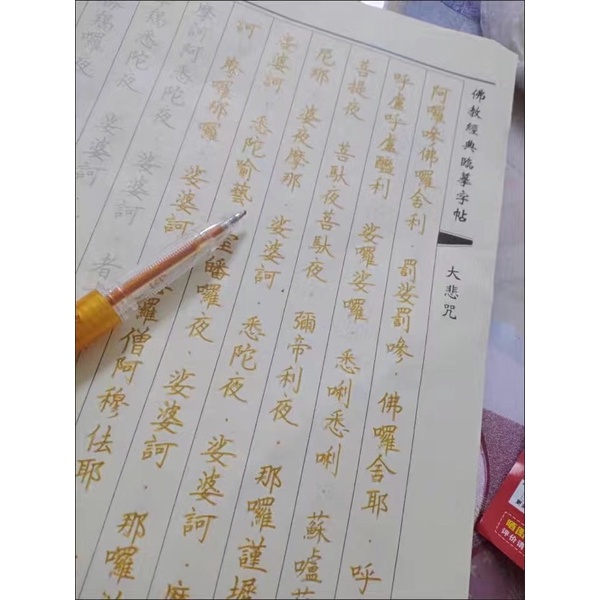 佛教經典臨摹字帖
大悲咒
阿囉嘇佛囉舍利．罰娑罰嘇．佛囉舍耶．呼
呼盧呼盧醯利　娑囉娑囉．悉唎悉唎．蘇嚧
菩提夜　菩馱夜菩馱夜．彌帝利夜．那囉謹墀
尼那　婆夜摩那．娑婆訶．悉陀夜．娑婆訶．摩
娑婆訶　悉陀喻藝　室皤囉夜．娑婆訶
訶　摩囉那囉．娑婆訶　囉僧阿穆佉耶　那囉
摩訶阿悉陀夜　娑婆訶．者
悉陀夜　娑婆訶